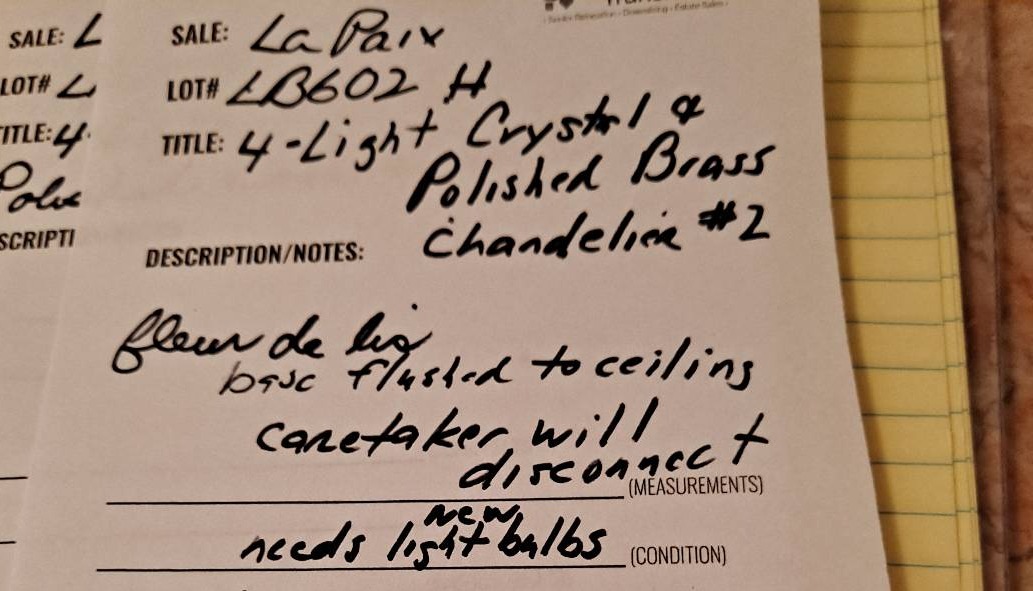 SALE: L
LOT# L
TITLE: 4
SCRIPTI
SALE: La Paix
LOT# LB602 H
TITLE: 4-Light Crystal &
Polished Brass
Chandelier #2
DESCRIPTION/NOTES:
fleur de lis
base flushed to ceiling
caretaker will
disconnect
(MEASUREMENTS)
new
needs light bulbs (CONDITION)